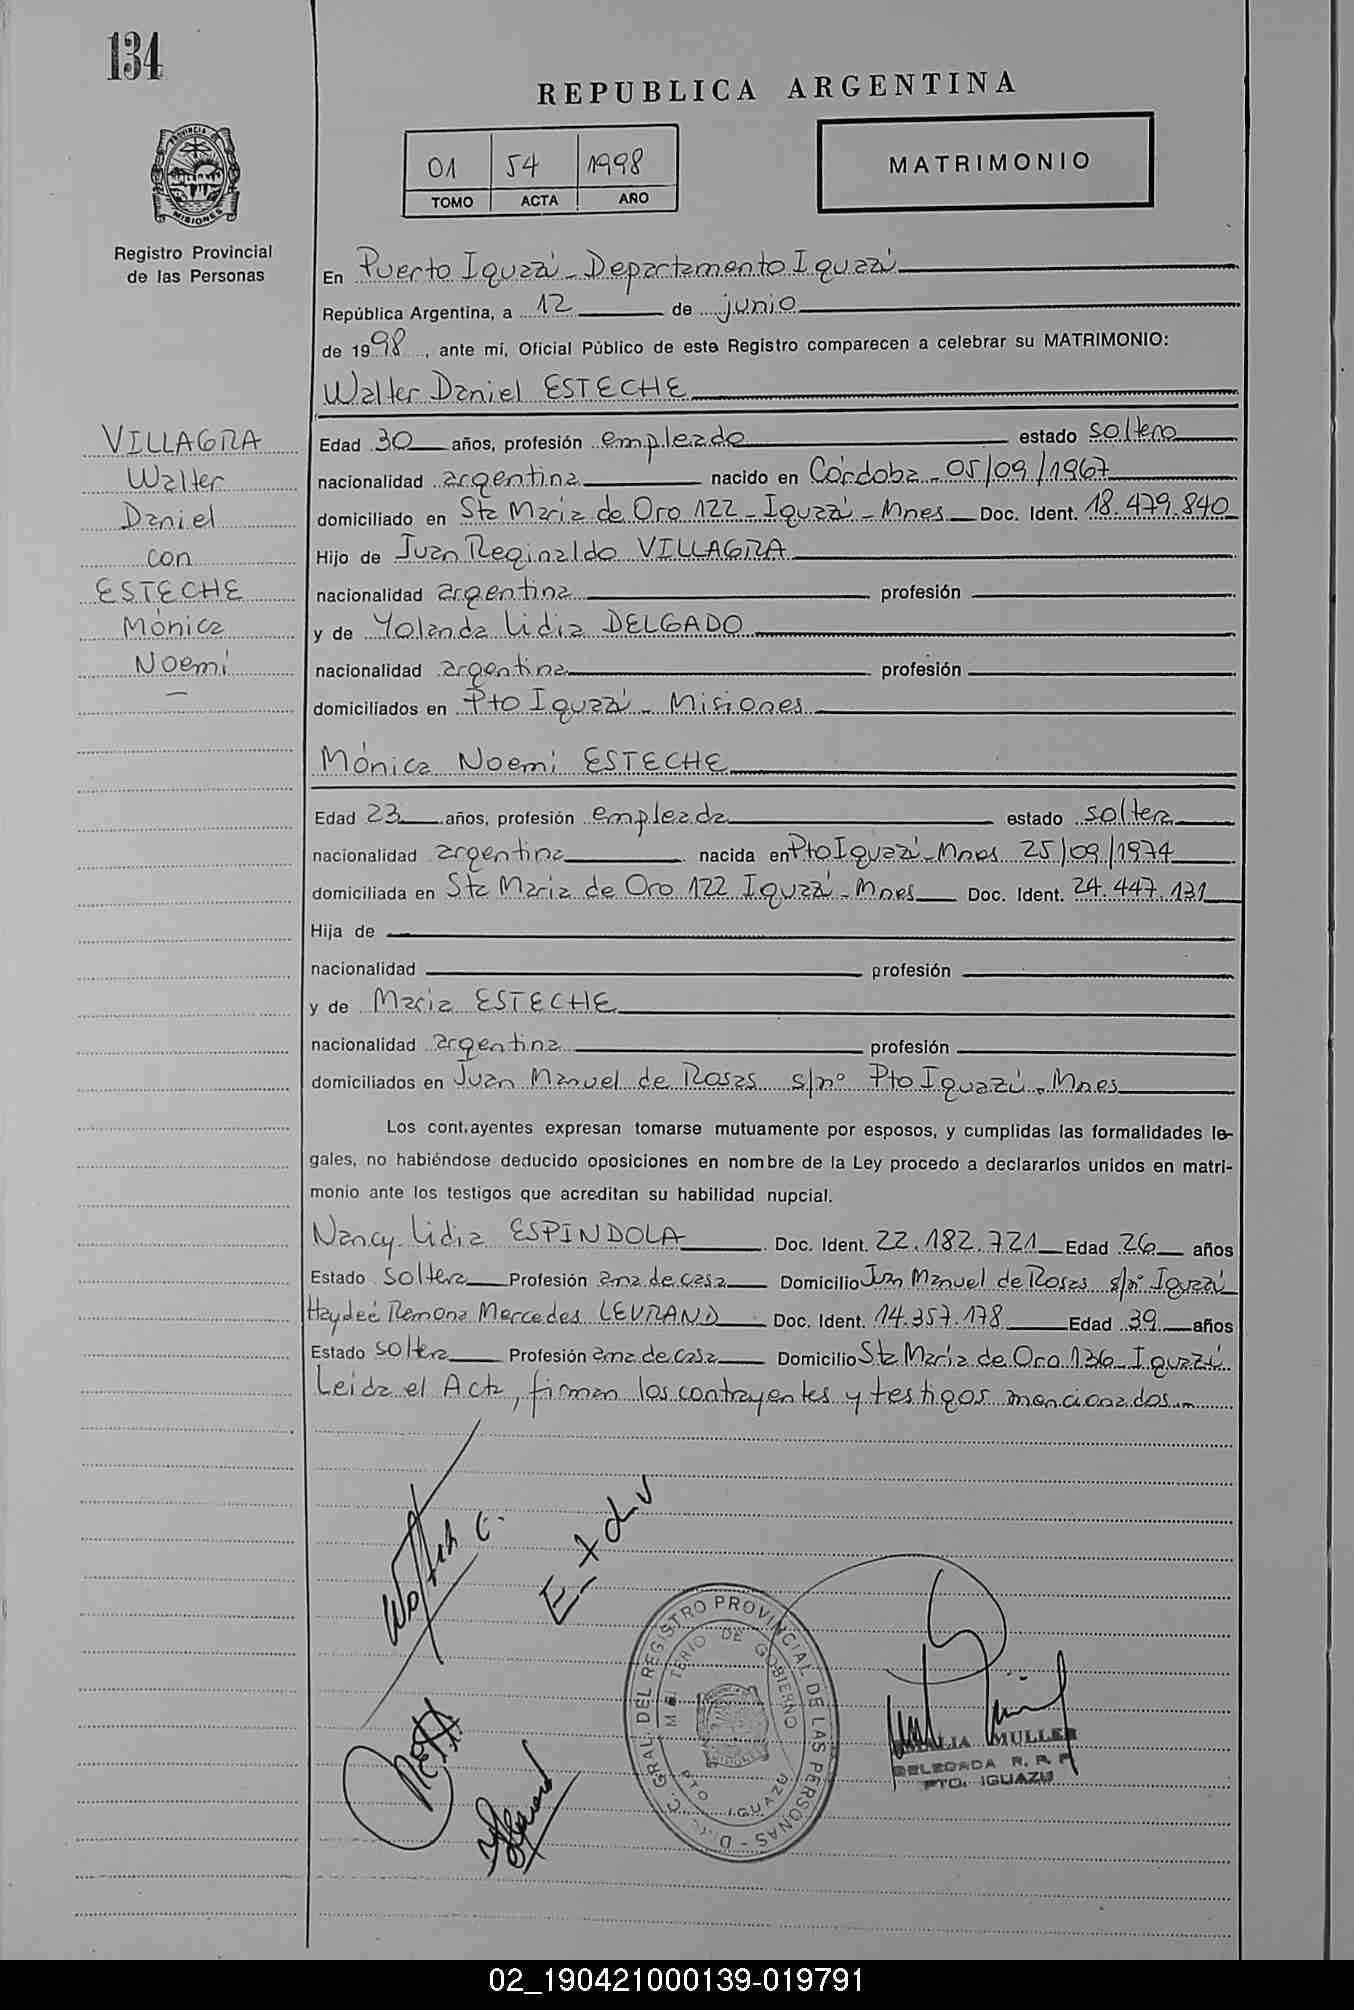 134
REPUBLICA ARGENTINA
01 54 1998
TOMO ACTA AÑO
MATRIMONIO
PROVINCIA DE
MISIONES
Registro Provincial
de las Personas
En Puerto Iguazú - Departamento Iguazú
República Argentina, a 12 de junio
de 1998, ante mí, Oficial Público de este Registro comparecen a celebrar su MATRIMONIO:
Walter Daniel ESTECHE
VILLAGRA
Walter
Daniel
con
ESTECHE
Mónica
Noemí
Edad 30 años, profesión empleado estado soltero
nacionalidad argentina nacido en Córdoba - 05/09/1967
domiciliado en Sta María de Oro 122 - Iguazú - Mnes Doc. Ident. 18.479.840
Hijo de Juan Reginaldo VILLAGRA
nacionalidad argentina profesión
y de Yolanda Lidia DELGADO
nacionalidad argentina profesión
domiciliados en Pto Iguazú - Misiones
Mónica Noemí ESTECHE
Edad 23 años, profesión empleada estado soltera
nacionalidad argentina nacida en Pto Iguazú - Mnes 25/09/1974
domiciliada en Sta María de Oro 122 Iguazú - Mnes Doc. Ident. 24.447.131
Hija de
nacionalidad profesión
y de María ESTECHE
nacionalidad argentina profesión
domiciliados en Juan Manuel de Rosas s/nº Pto Iguazú - Mnes
Los cont.ayentes expresan tomarse mutuamente por esposos, y cumplidas las formalidades le-
gales, no habiéndose deducido oposiciones en nombre de la Ley procedo a declararlos unidos en matri-
monio ante los testigos que acreditan su habilidad nupcial.
Nancy Lidia ESPINDOLA Doc. Ident. 22.182.721 Edad 26 años
Estado soltera Profesión ama de casa Domicilio Juan Manuel de Rosas s/nº Iguazú
Haydeé Ramona Mercedes LEVRAND Doc. Ident. 14.357.178 Edad 39 años
Estado soltera Profesión ama de casa Domicilio Sta María de Oro 136 Iguazú
Leida el Acta, firman los contrayentes y testigos mencionados
D. GRAL. DEL REGISTRO PROVINCIAL DE LAS PERSONAS
DE GOBIERNO
PTO IGUAZU
MULLER
DELEGADA R. P. P.
PTO. IGUAZU
02_190421000139-019791